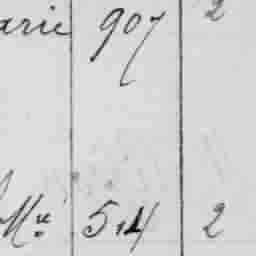 arie 907 2
Mu 514 2